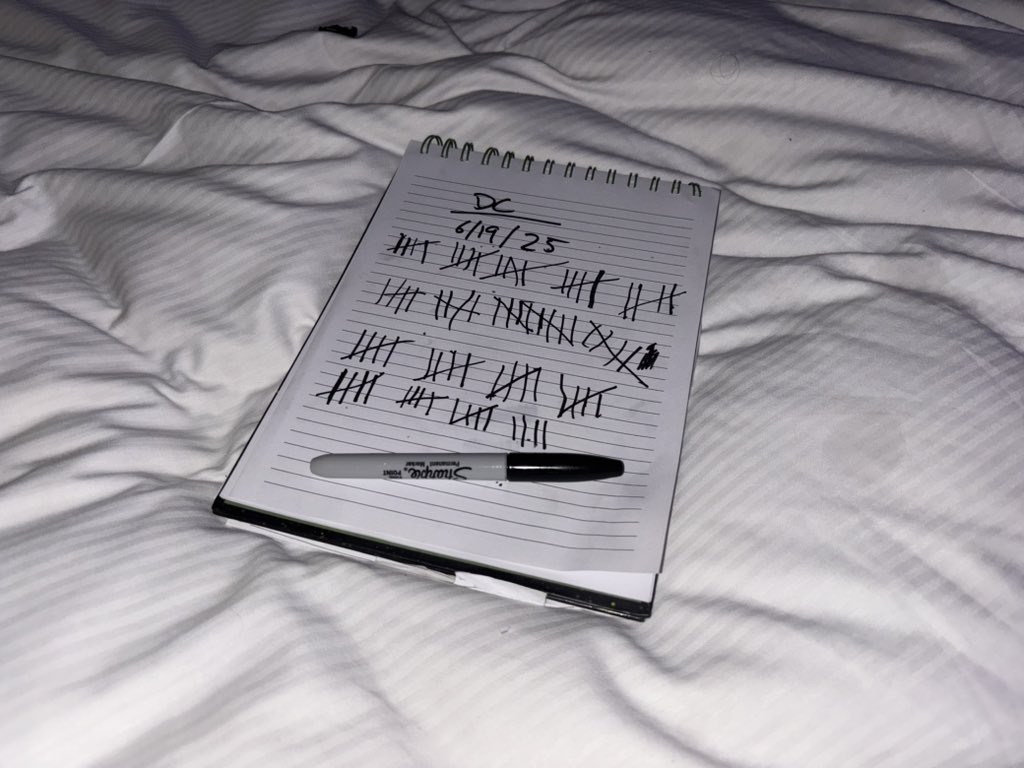 DC
6/19/25
Sharpie
FINE POINT
Permanent Marker